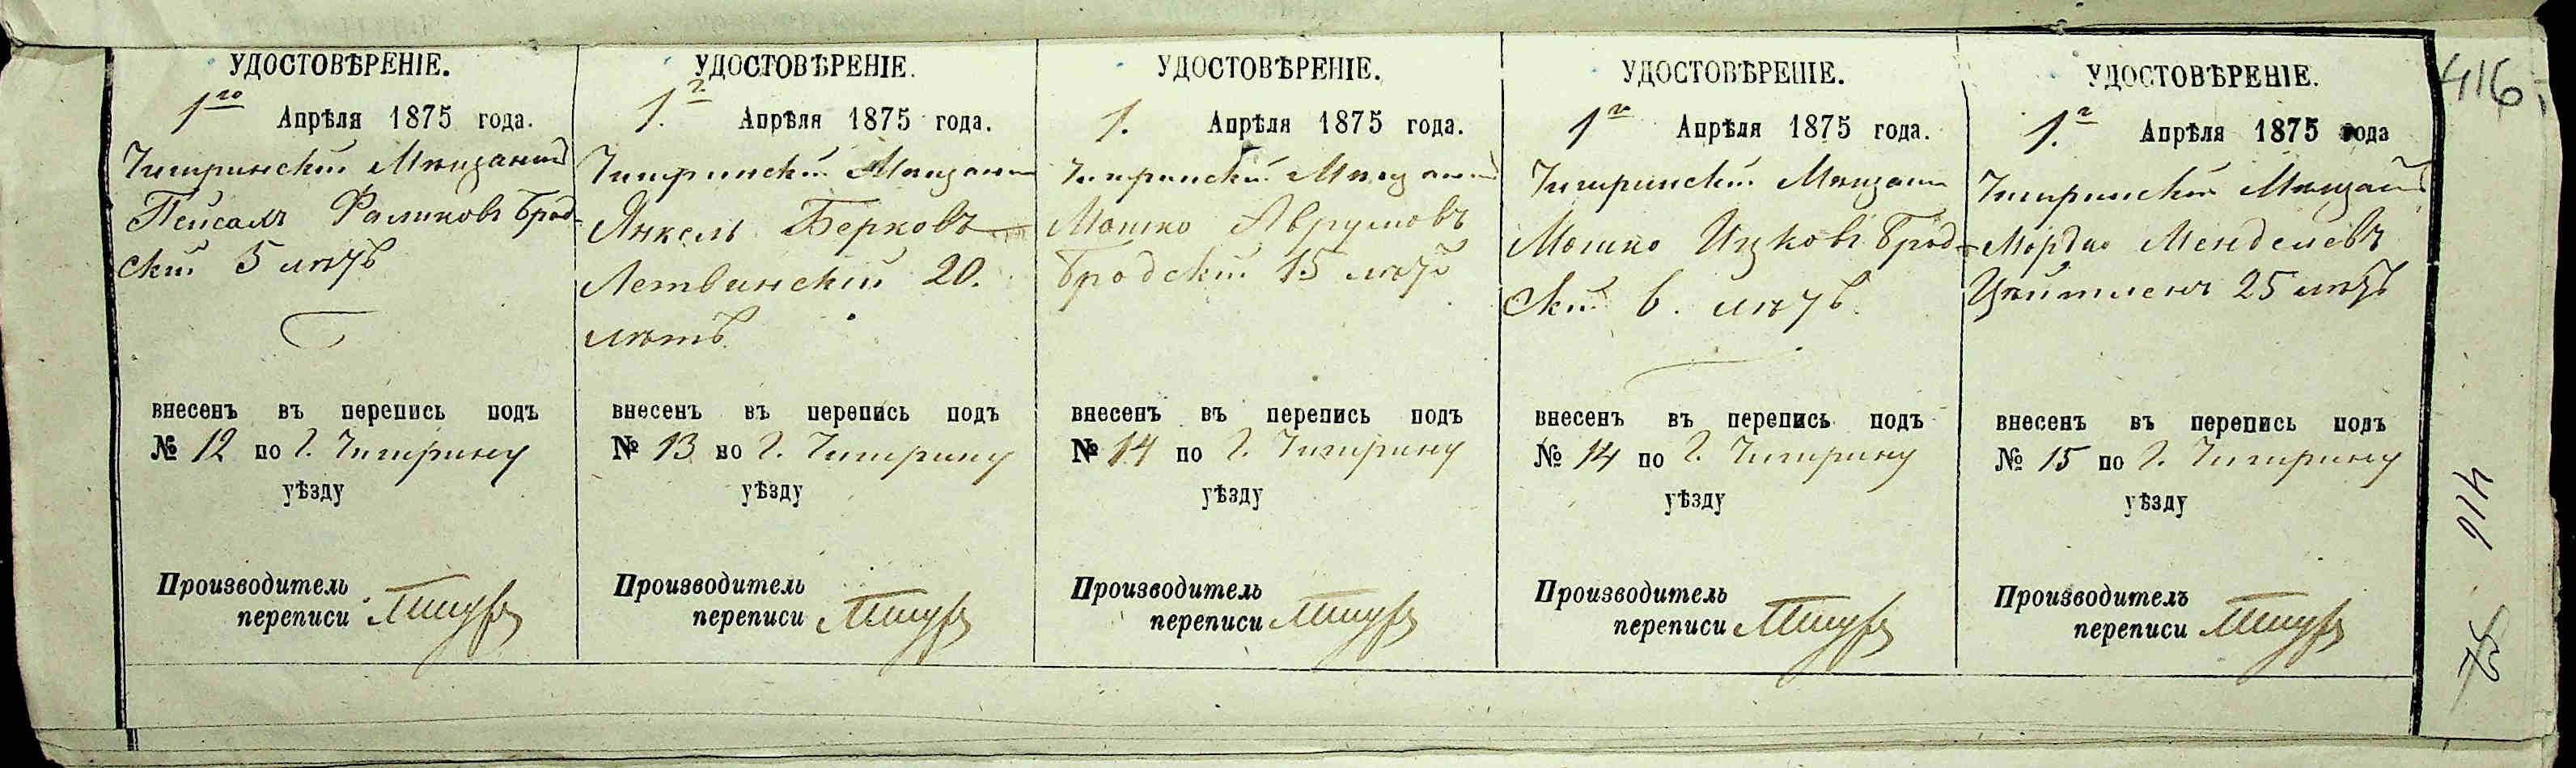 УДОСТОВѢРЕНІЕ.
1го Апрѣля 1875 года.
Чигринскій Мѣщанинъ
Пейсахъ Фаликовъ Брод-
скій 5 лѣтъ
внесенъ въ перепись подъ
№ 12 по г. Чигрину
уѣзду
Производитель
переписи
УДОСТОВѢРЕНІЕ.
1.г Апрѣля 1875 года.
Чигринскій Мѣщанин
Янкель Берковъ
Летвинскій 20.
лѣтъ
внесенъ въ перепись подъ
№ 13 по г. Чигрину
уѣзду
Производитель
переписи
УДОСТОВѢРЕНІЕ.
1. Апрѣля 1875 года.
Чигринскій Мѣщанин
Мошко Аврумовъ
Бродскій 15 лѣтъ
внесенъ въ перепись подъ
№ 14 по г. Чигрину
уѣзду
Производитель
переписи
УДОСТОВѢРЕНІЕ.
1го Апрѣля 1875 года.
Чигринскій Мѣщанин
Мошко Ицковъ Брод-
скій 6. лѣтъ.
внесенъ въ перепись подъ
№ 14 по г. Чигрину
уѣзду
Производитель
переписи
УДОСТОВѢРЕНІЕ.
1.г Апрѣля 1875 года
Чигринскій Мѣщанин
Мордко Менделевъ
Цейтленъ 25 лѣтъ
внесенъ въ перепись подъ
№ 15 по г. Чигрину
уѣзду
Производитель
переписи
416
416